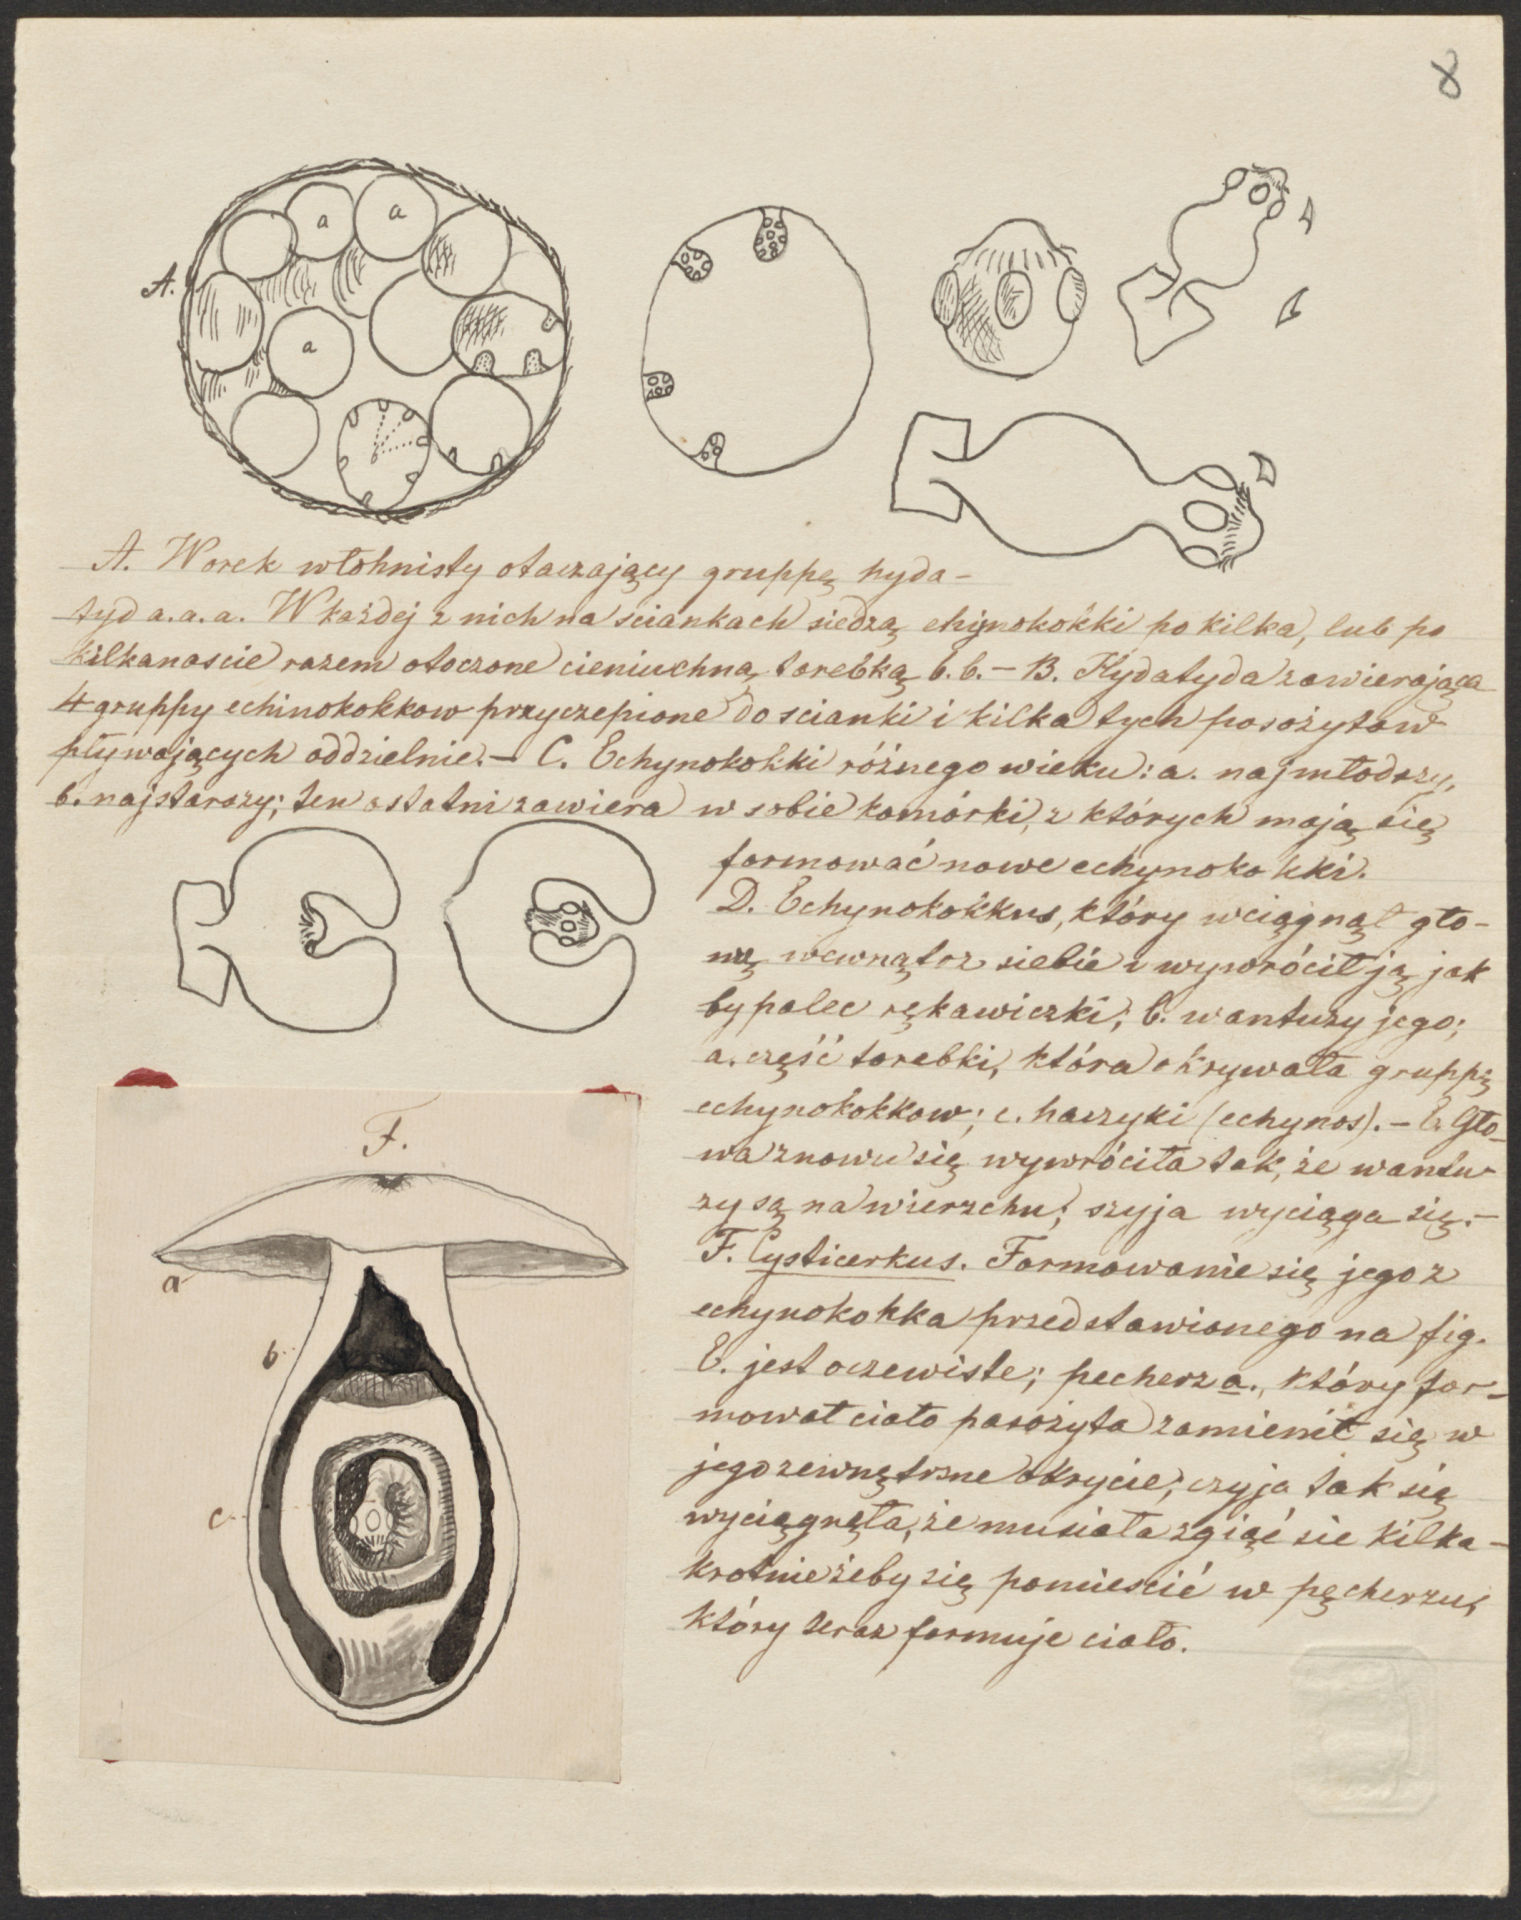 8
a
a
A.
a
A. Worek włóknisty otaczający gruppę hyda-
tyd a.a.a. W każdej z nich na sciankach siedzą echynokokki po kilka, lub po
kilkanascie razem otoczone cieniuchną torebką b.b.— B. Hydatyda zawierająca
4 gruppy echinokokkow przyczepione do scianki i kilka tych pasożytow
pływających oddzielnie.— C. Echynokokki różnego wieku: a. najmłodszy,
b. najstarszy; ten ostatni zawiera w sobie komórki, z których mają się
formować nowe echynokokki.
D. Echynokokkus, który wciągnął gło-
wę wewnątrz siebie i wywrócił ją jak
by palec rękawiczki; b. wantuzy jego;
a. część torebki, która okrywała gruppę
echynokokkow; c. haczyki (echynos).— E. Gło-
wa znowu się wywróciła tak, że wantu-
zy są na wierzchu; szyja wyciąga się.—
F. Cysticerkus. Formowanie się jego z
echynokokka przedstawionego na fig.
E. jest oczewiste; pęcherz a., który for-
mował ciało pasożyta zamienił się w
jego zewnętrzne okrycie; szyja tak się
wyciągnęła, że musiała zgiąć sie kilka-
krotnie żeby się pomieścić w pęcherzu,
który teraz formuje ciało.
F.
a
b
c